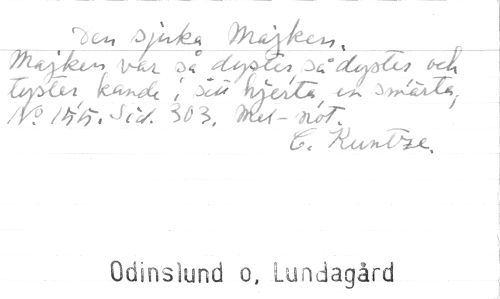 Den sjuka Majken.
Majken var så dyster, så dyster och
tyster kände i sitt hjerta en smärta,
No 155. Sid. 303. Mel-not.
C. Kuntze.
Odinslund o, Lundagård